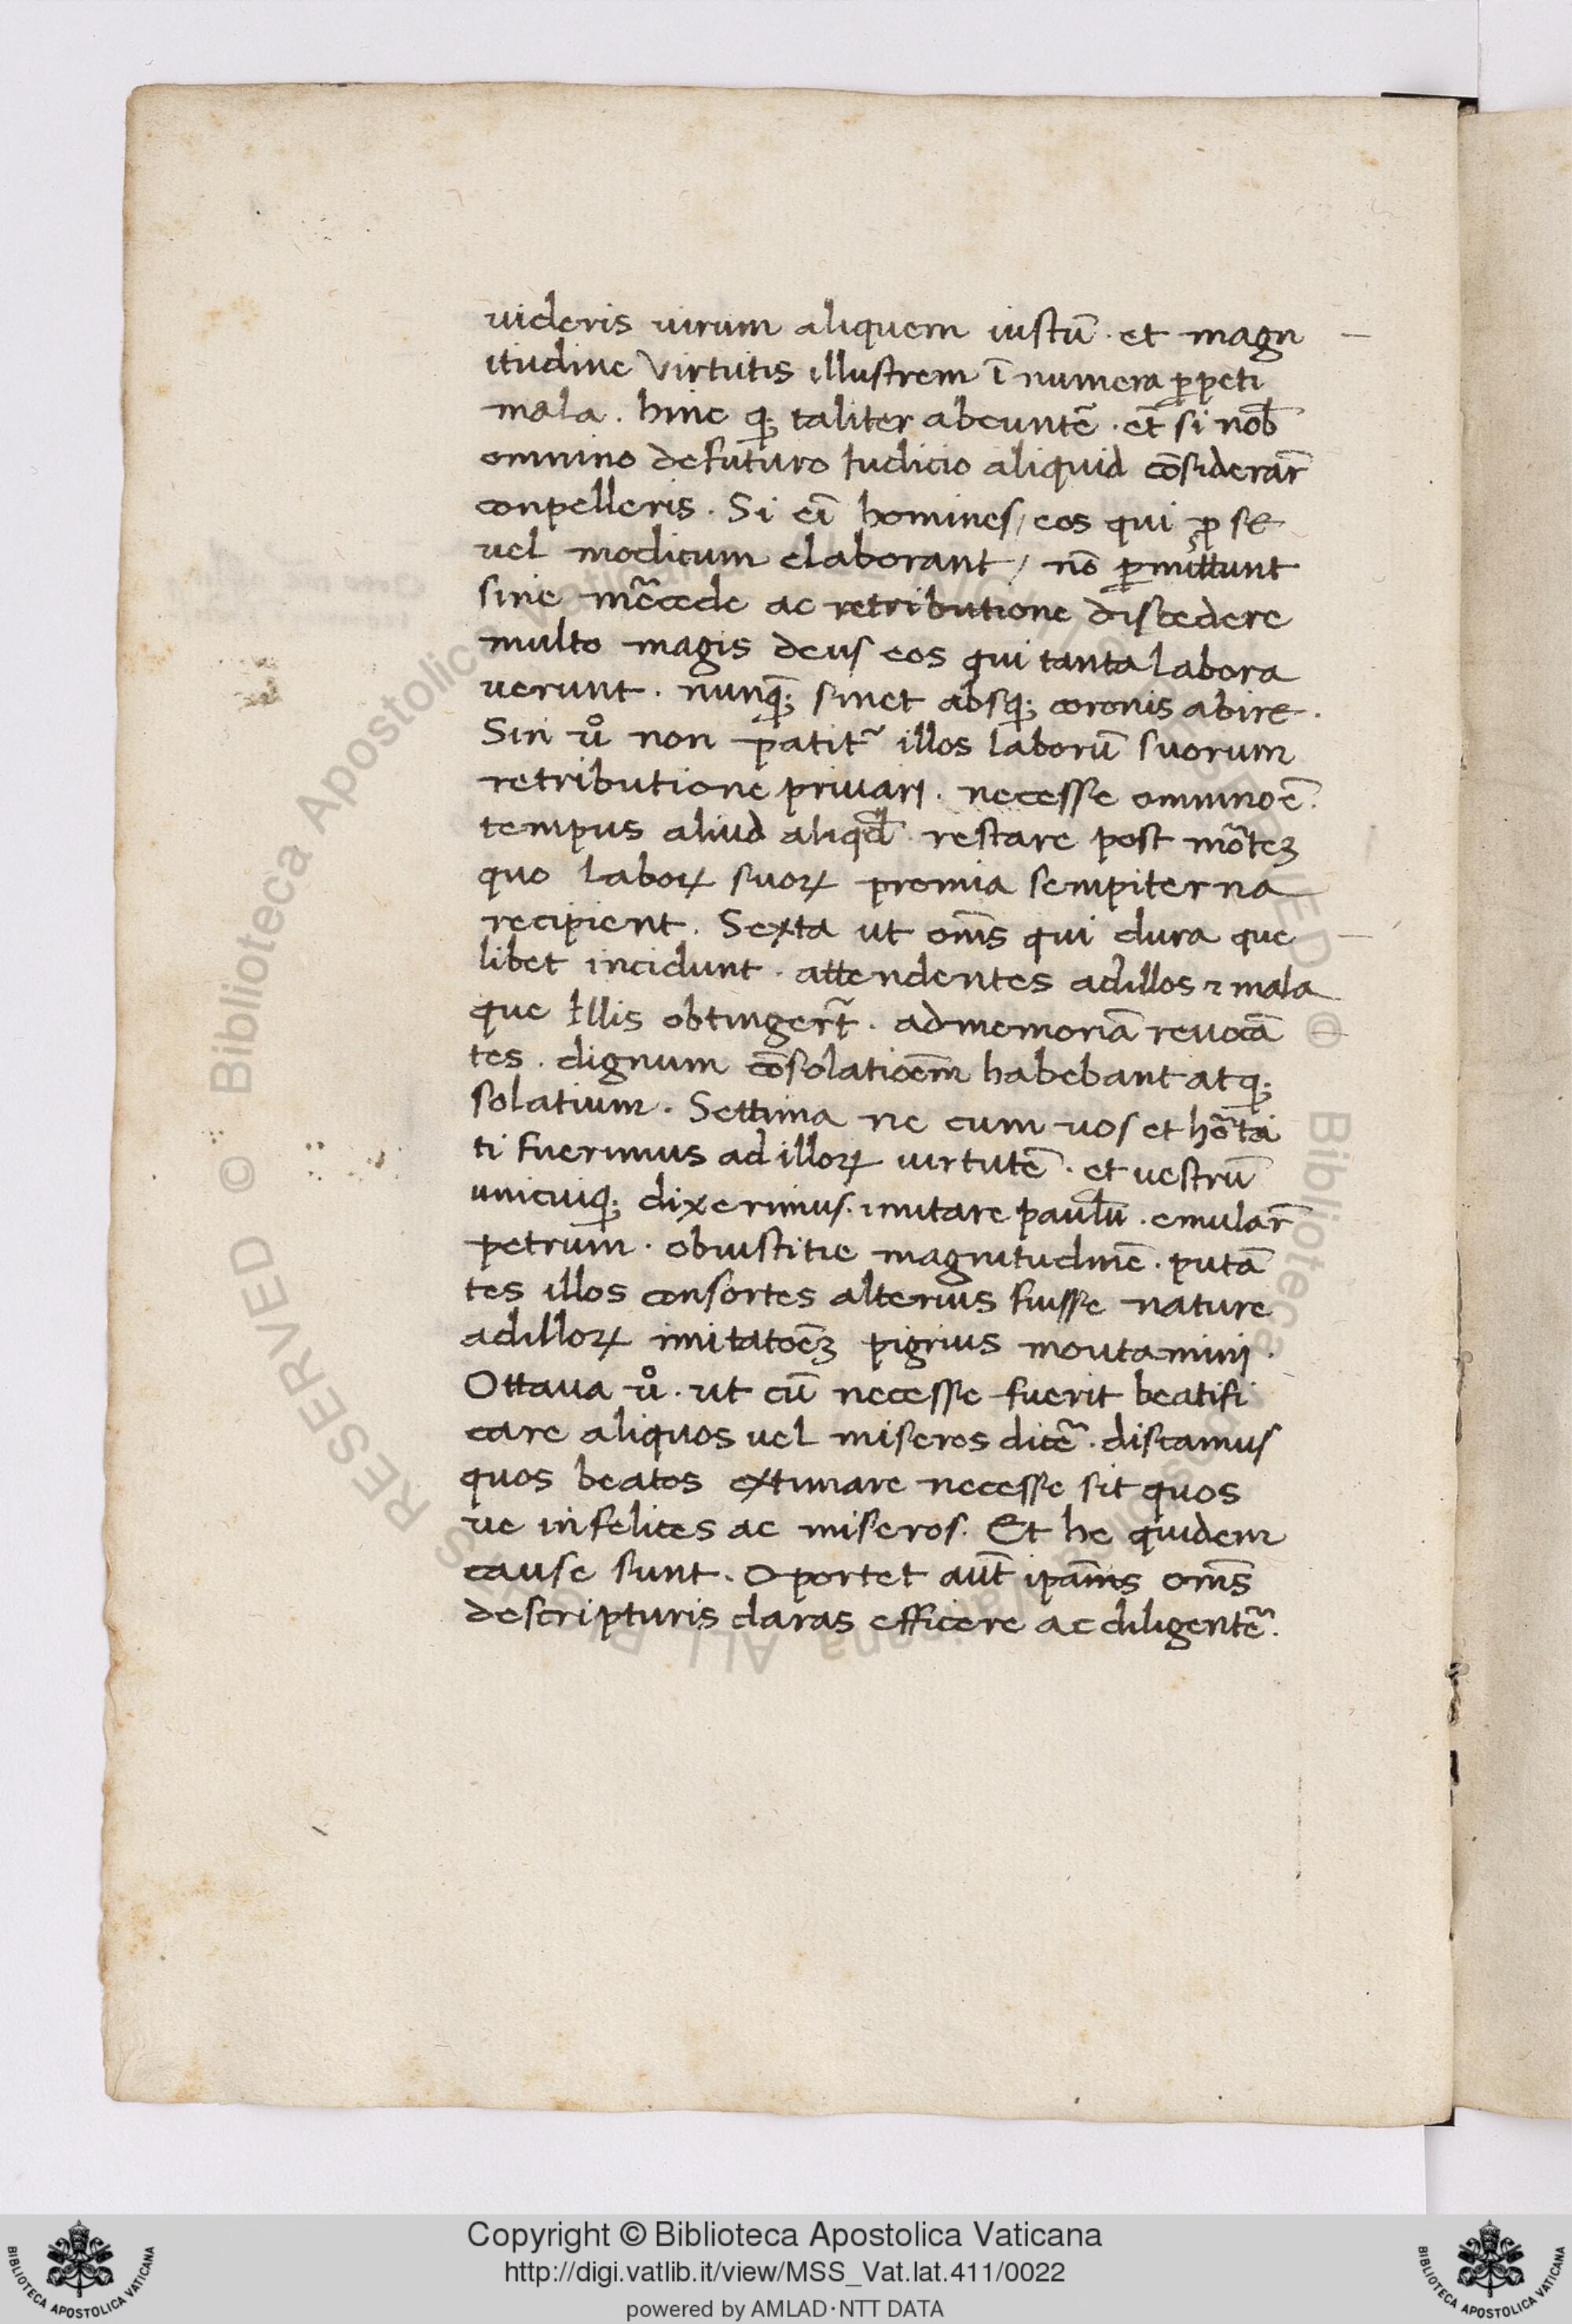 uideris uirum aliquem iustū · et magn
itudine virtutis illustrem ī numera ꝑpeti
mala . hinc qꝫ taliter abeuntē · et̄ si nob̄
omnino defuturo Iudicio aliquid cōsiderar̄
conpelleris . Si ei̅ homines / eos qui ꝓ se
uel modicum elaborant / nō ꝑmittunt
sine mc̄ede ac retributione discedere
multo magis deus eos qui tanta labora
uerunt . nunqꝫ sinet absqꝫ coronis abire .
Sin uº non patit᷑ illos laborū suorum
retributione priuari . necesse omnino ē .
tempus aliud aliqd̄ · restare post mōteꝫ
quo laboꝝ suoꝝ premia sempiterna
recipient . Sexta ut om̄s qui dura que
libet incidunt . attendentes ad illos ⁊ mala
que Illis obtinger̄t . ad memoriā reuocā
tes . dignum cōsolatioēm habebant atqꝫ
solatium . Settima ne cum uos et hōta
ti fuerimus ad illoꝝ uirtutē . et uestrū
unicuiqꝫ dixerimus . imitare paulū . emular̄
petrum . ob iustitie magnitudinē . putā
tes illos consortes alterius fuisse nature
ad illoꝝ imitatoēꝫ pigrius moutamini .
Ottaua uº . ut cū necesse fuerit beatifi
care aliquos uel miseros dicē . discamus
quos beatos extimare necesse sit quos
ue infelices ac miseros . Et he quidem
cause sunt . Oportet aut̄ ipām̄s om̄s
de scripturis claras efficere ac diligentē .
© Biblioteca Apostolica Vaticana ALL RIGHTS RESERVED
Copyright © Biblioteca Apostolica Vaticana
http://digi.vatlib.it/view/MSS_Vat.lat.411/0022
powered by AMLAD·NTT DATA
BIBLIOTECA APOSTOLICA VATICANA
BIBLIOTECA APOSTOLICA VATICANA